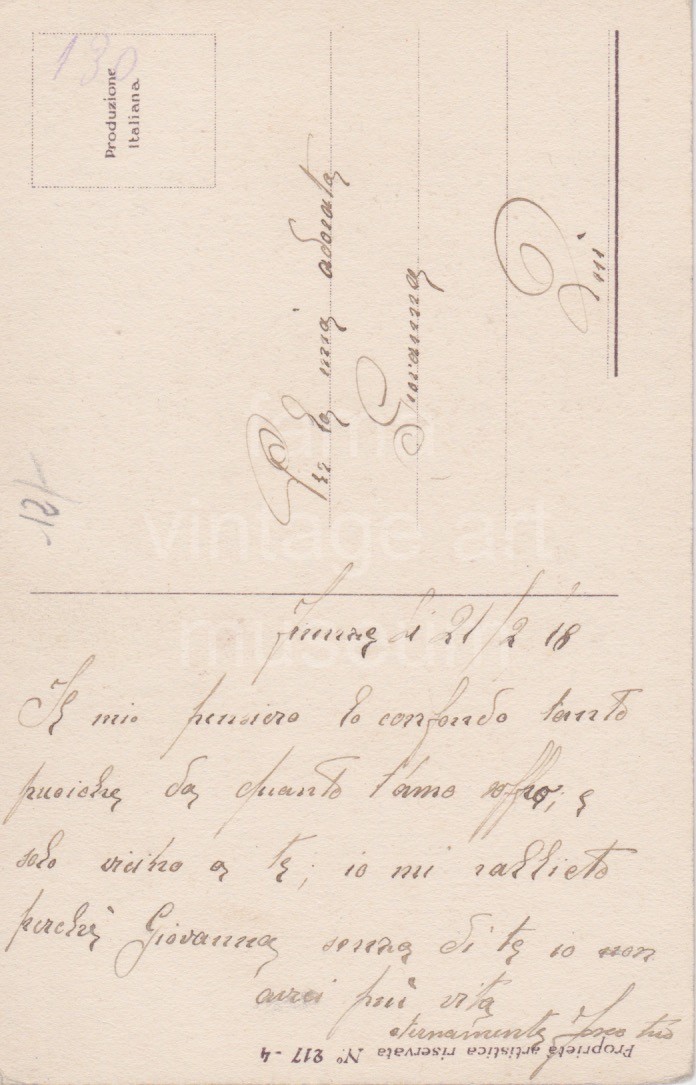 13
Produzione
Italiana.
Per la mia adorata
Giovanna
Qui
12/-
fama
vintage art
museum
li 21/2 18
Il mio pensiero lo confondo tanto
da quanto t'amo soffro; e
solo vicino a te; io mi rallieto
perchè Giovanna senza di te io non
avrei più vita
eternamente tuo
Proprietà artistica riservata N° 217-4